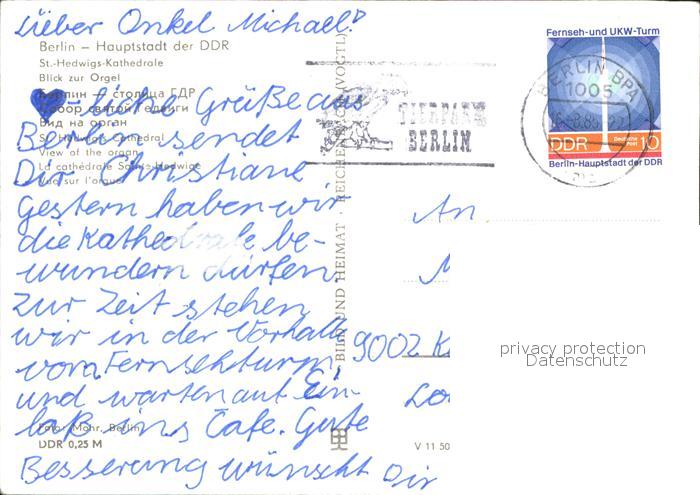 Lieber Onkel Michael!
Berlin – Hauptstadt der DDR
St.-Hedwigs-Kathedrale
Blick zur Orgel
столица ГДР
-liche Grüße aus
святой Ядвиги
Вид на орган
Berlin sendet
St. Hedwig's Cathedral
View of the organ
Dir Christiane
La cathédrale Sainte-Hedwige
Vue sur l'orgue
Gestern haben wir
die Kathedrale be-
wundern dürfen.
Zur Zeit stehen
wir in der Vorhalle
vom Fernsehturm,
und warten auf Ein-
laß ins Cafe. Gute
Foto: Mohr, Berlin
DDR 0,25 M
Besserung wünscht Dir
BILD UND HEIMAT · REICHENBACH (VOGTL)
V 11 50
TIERPARK
BERLIN
BERLIN BPA
1005
Fernseh-und UKW-Turm
DDR
Deutsche Post
10
Berlin-Hauptstadt der DDR
An
9002 K
privacy protection
Datenschutz